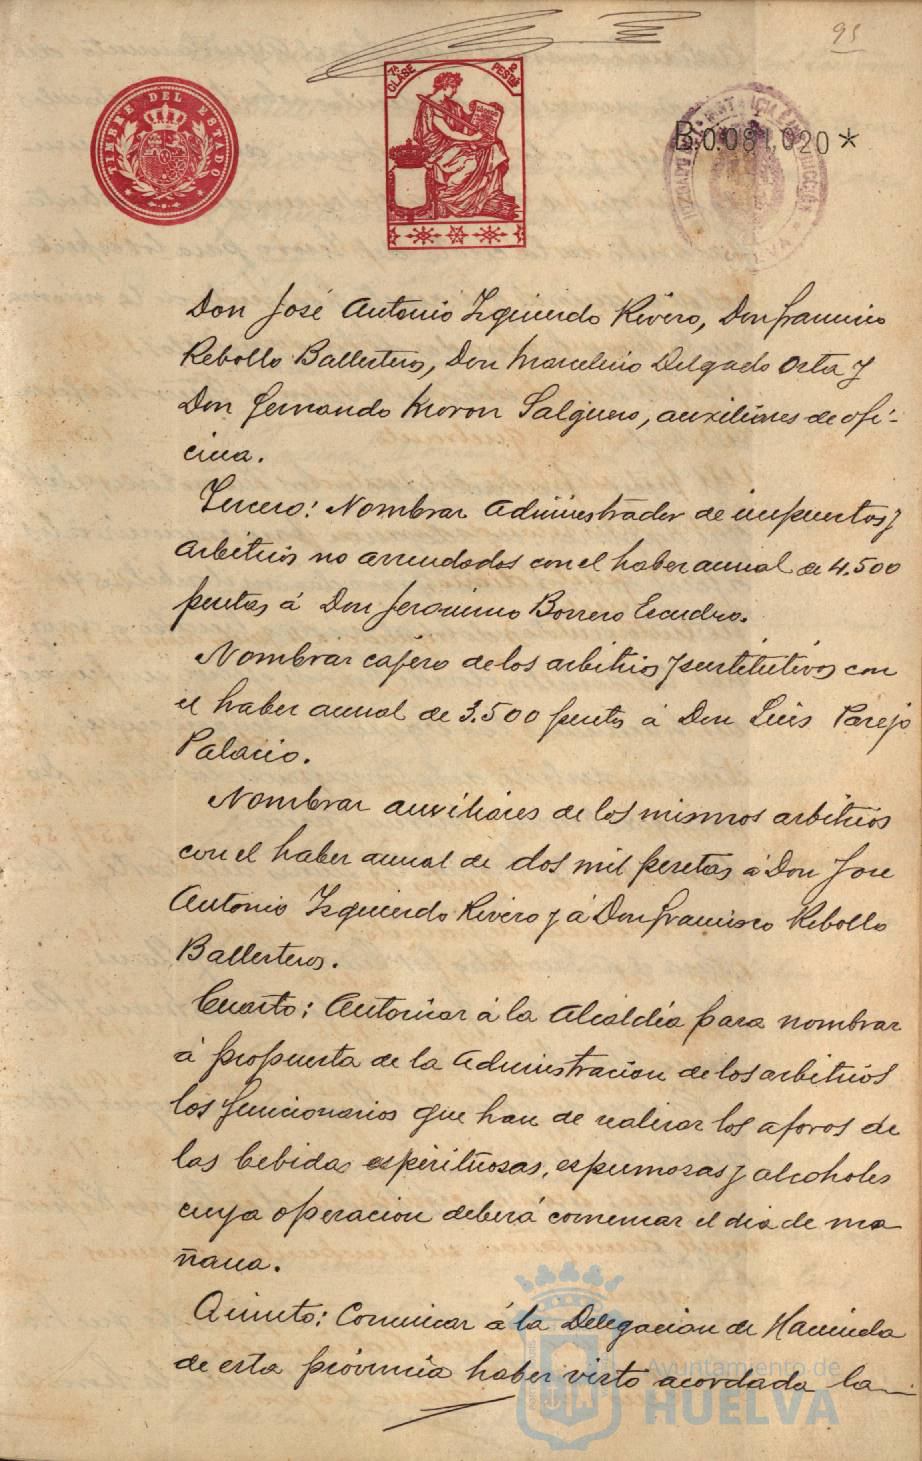 95
TIMBRE DEL ESTADO
7ª CLASE 2 PESETAS
B.0.081,020*
HUELVA
Don José Antonio Izquierdo Rivero, Don francisco
Rebollo Ballesteros, Don Marcelino Delgado Orta y
Don fernando Moron Salguero, auxiliares de ofi-
cina.
Tercero: Nombrar Administrador de impuestos y
arbitrios no arrendados con el haber anual de 4.500
pesetas á Don Jeronimo Borrero Escudero.
Nombrar cajero de los arbitrios sustitutivos con
el haber anual de 3.500 pesetas á Don Luis Parejo
Palacio.
Nombrar auxiliares de los mismos arbitrios
con el haber anual de dos mil pesetas á Don Jose
Antonio Izquierdo Rivero y á Don francisco Rebollo
Ballesteros.
Cuarto: Autorizar á la Alcaldía para nombrar
á propuesta de la Administracion de los arbitrios
los funcionarios que han de realizar los aforos de
las bebidas espirituosas, espumosas y alcoholes
cuya operacion deberá comenzar el dia de ma
ñana.
Quinto: Comunicar á la Delegacion de Hacienda
de esta provincia haber visto acordada la
Ayuntamiento de
HUELVA